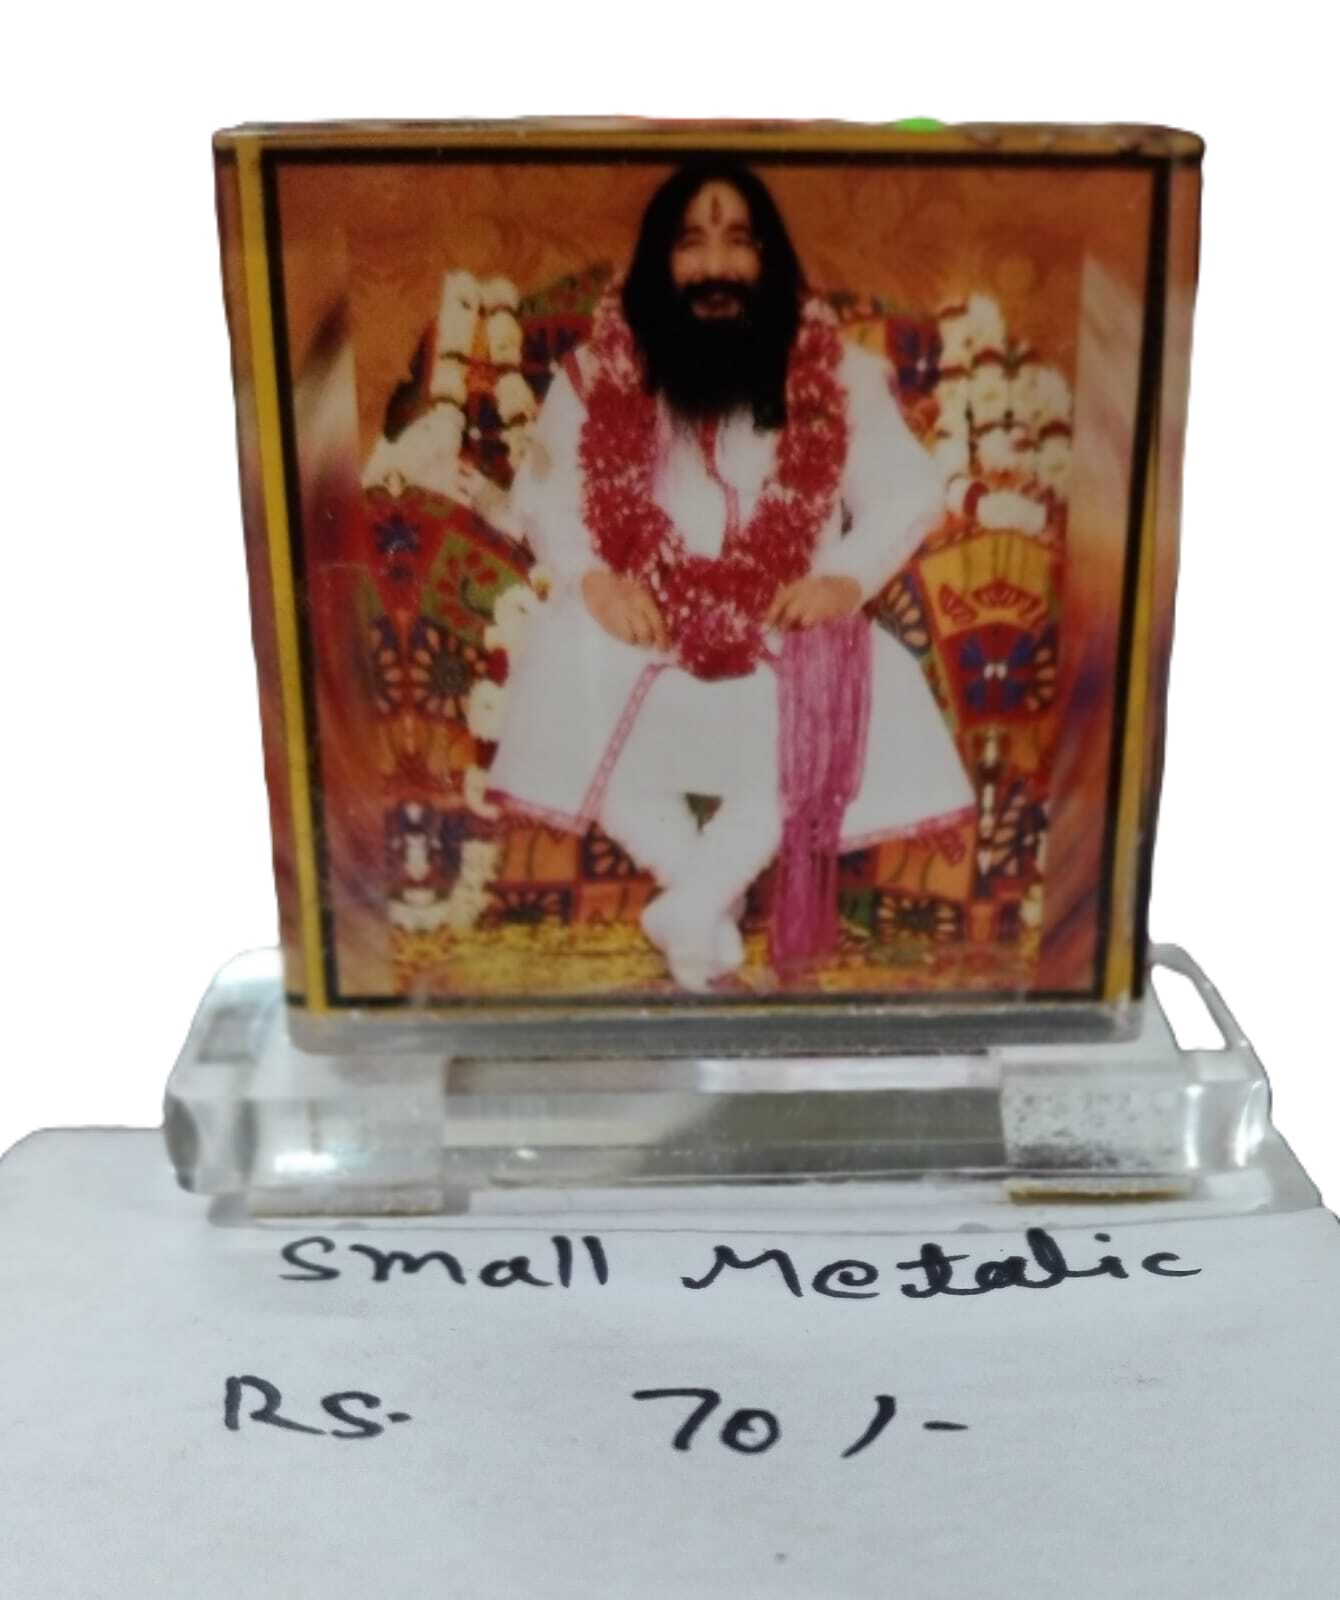 small Metalic
RS. 70/-